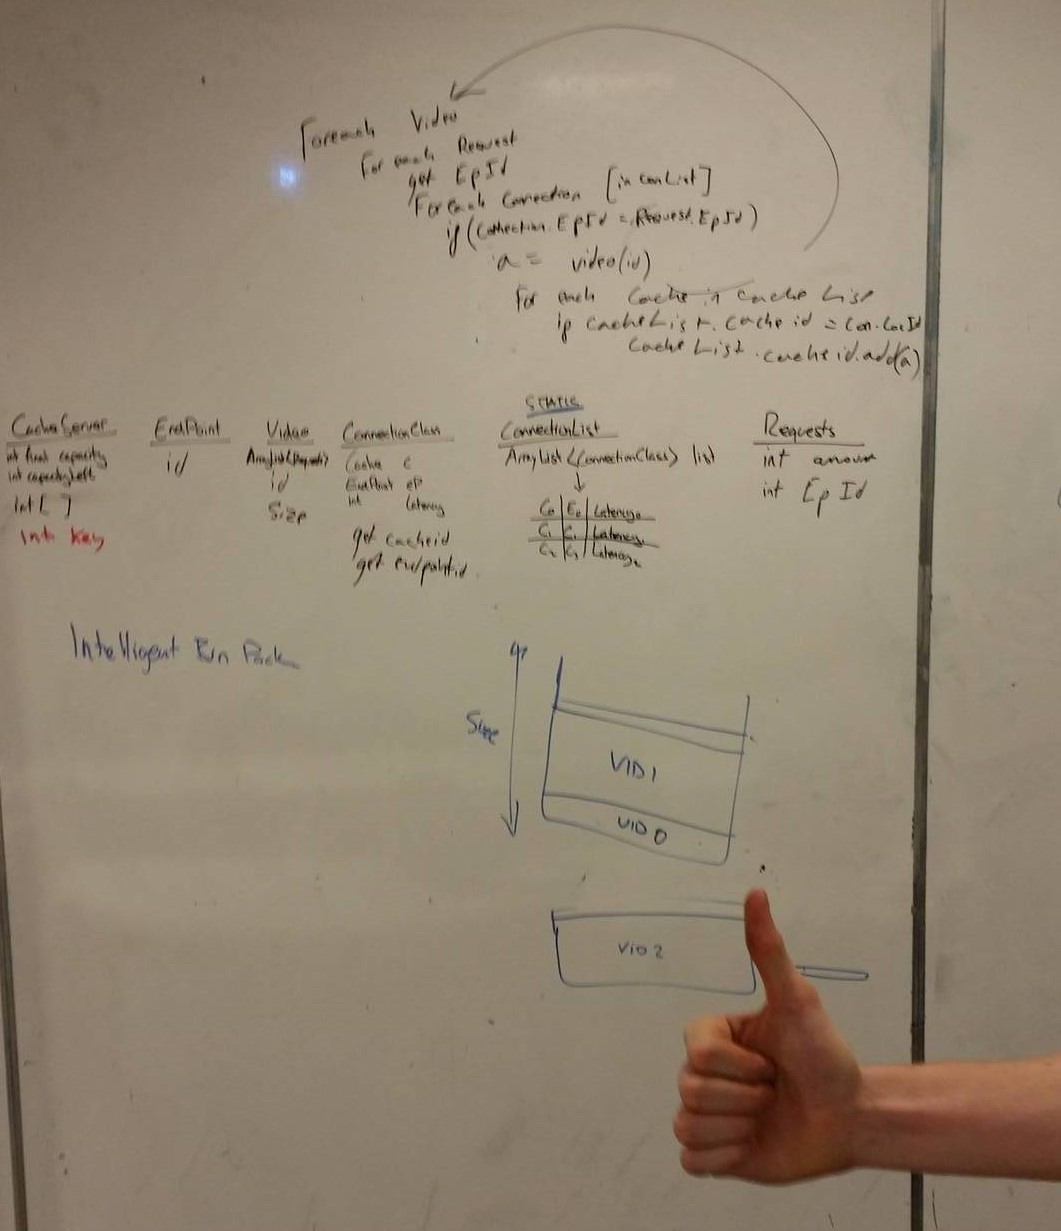 Foreach Video
For each Request
get EpId
For Each Connection [in conList]
if (Connection.EpId = Request.EpId)
a = video(id)
For each Cache in cache List
if cacheList.cache id = Con.CacId
Cache List.cacheid.add(a)
CacheServer
int final capacity
int capacityLeft
Int [ ]
Int Key
EndPoint
id
Video
ArrayList(Requests)
id
Size
ConnectionClass
Cache C
EndPoint eP
int Latency
get cacheid
get endpointid
STATIC
ConnectionList
ArrayList<ConnectionClass> list
C0 E0 Latency0
C1 Latency1
C2 Latency2
Requests
int amount
int EpId
Intelligent Bin Pack
Size
VID 1
VID 0
VID 2